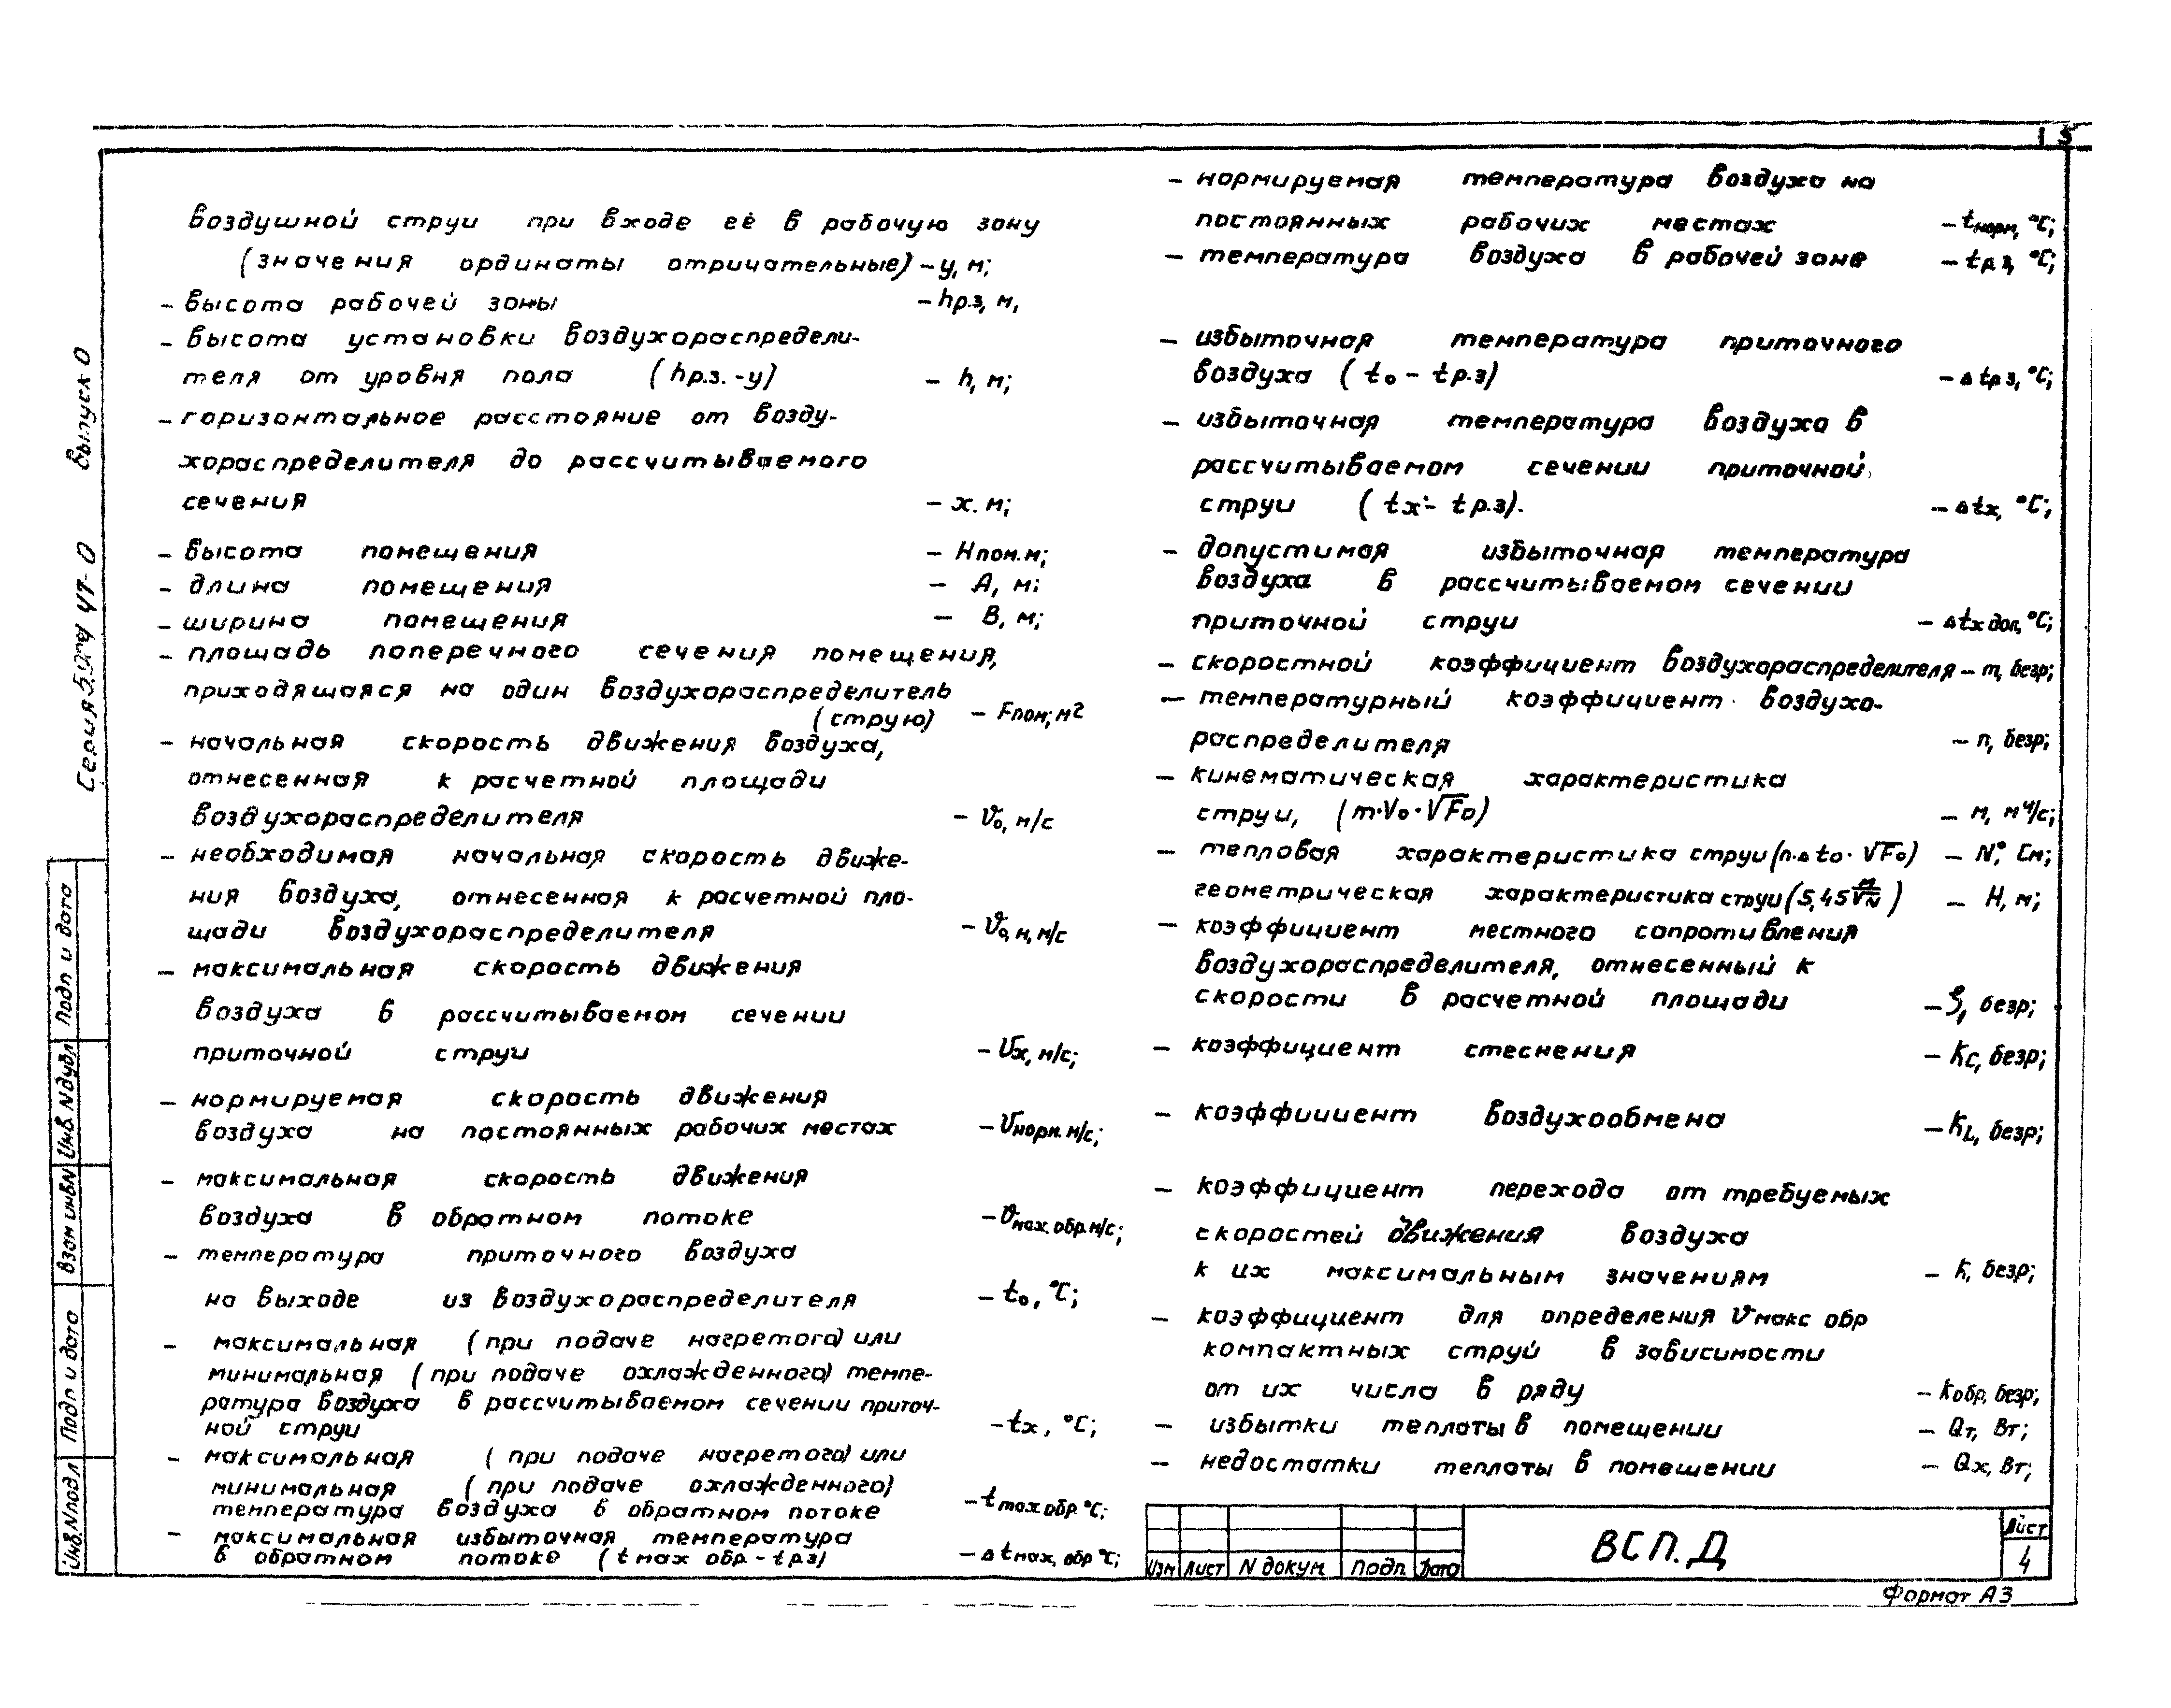 15
воздушной струи при входе её в рабочую зону
(значения ординаты отричательные) – у, м;
– высота рабочей зоны – hр.з, м,
– высота установки воздухораспредели-
теля от уровня пола (hр.з. -у) – h, м;
– горизонтальное расстояние от возду-
хораспределителя до рассчитываемого
сечения – х. м;
– высота помещения – Нпом. м;
– длина помещения – А, м;
– ширина помещения – В, м;
– площадь поперечного сечения помещения,
приходящаяся на один воздухораспределитель
(струю) – Fпом; м²
– начальная скорость движения воздуха,
отнесенная к расчетной площади
воздухораспределителя – v₀, м/с
– необходимая начальная скорость движе-
ния воздуха, отнесенная к расчетной пло-
щади воздухораспределителя – v₀, н, м/с
– максимальная скорость движения
воздуха в рассчитываемом сечении
приточной струи – vх, м/с;
– нормируемая скорость движения
воздуха на постоянных рабочих местах – vнорм. м/с;
– максимальная скорость движения
воздуха в обратном потоке – vмах. обр. м/с;
– температура приточного воздуха
на выходе из воздухораспределителя – t₀, °С;
– максимальная (при подаче нагретого) или
минимальная (при подаче охлажденного) темпе-
ратура воздуха в рассчитываемом сечении приточ-
ной струи – tх, °С;
– максимальная (при подаче нагретого) или
минимальная (при подаче охлажденного)
температура воздуха в обратном потоке – tmax обр. °С;
– максимальная избыточная температура
в обратном потоке (tmax обр. - tр.з) – Δtmax, обр °С;
– нормируемая температура воздуха на
постоянных рабочих местах – tнорм, °С;
– температура воздуха в рабочей зоне – tр.з, °С;
– избыточная температура приточного
воздуха (t₀ – tр.з) – Δtр.з, °С;
– избыточная температура воздуха в
рассчитываемом сечении приточной
струи (tх – tр.з). – Δtх, °С;
– допустимая избыточная температура
воздуха в рассчитываемом сечении
приточной струи – Δtх доп, °С;
– скоростной коэффициент воздухораспределителя – m, безр;
– температурный коэффициент воздухо-
распределителя – n, безр;
– кинематическая характеристика
струи, (m·V₀·√F₀) – м, м⁴/с;
– тепловая характеристика струи (n·Δt₀·√F₀) – N, °См;
геометрическая характеристика струи (5,45 м/√N) – Н, м;
– коэффициент местного сопротивления
воздухораспределителя, отнесенный к
скорости в расчетной площади – ζ, безр;
– коэффициент стеснения – Кс, безр;
– коэффициент воздухообмена – КL, безр;
– коэффициент перехода от требуемых
скоростей движения воздуха
к их максимальным значениям – К, безр;
– коэффициент для определения vмакс обр
компактных струй в зависимости
от их числа в ряду – Кобр, безр;
– избытки теплоты в помещении – Qт, Вт;
– недостатки теплоты в помещении – Qх, Вт;
Серия 5.904 УТ-0 выпуск 0
Подп и дата
Инв. N дубл
Взам инв N
Подп и дата
Инв. N подл
Изм Лист N докум Подп Дата
ВСП. Д
Лист
4
Формат А3